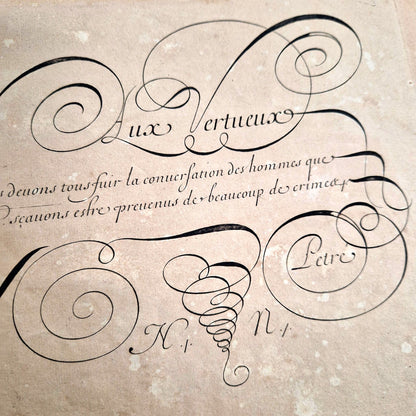 Aux Vertueux
s deuons tous fuir la conuersation des hommes que
sçauons estre preuenus de beaucoup de crimes
Petré
N n